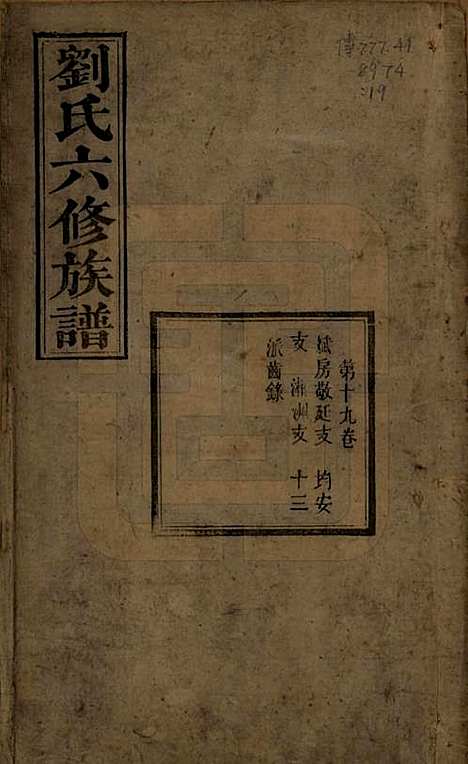 劉氏六修族譜
傳 777.41
8974
:19
第十九卷
房敬廷支 均安
支 湘洲支 十三
派齒錄